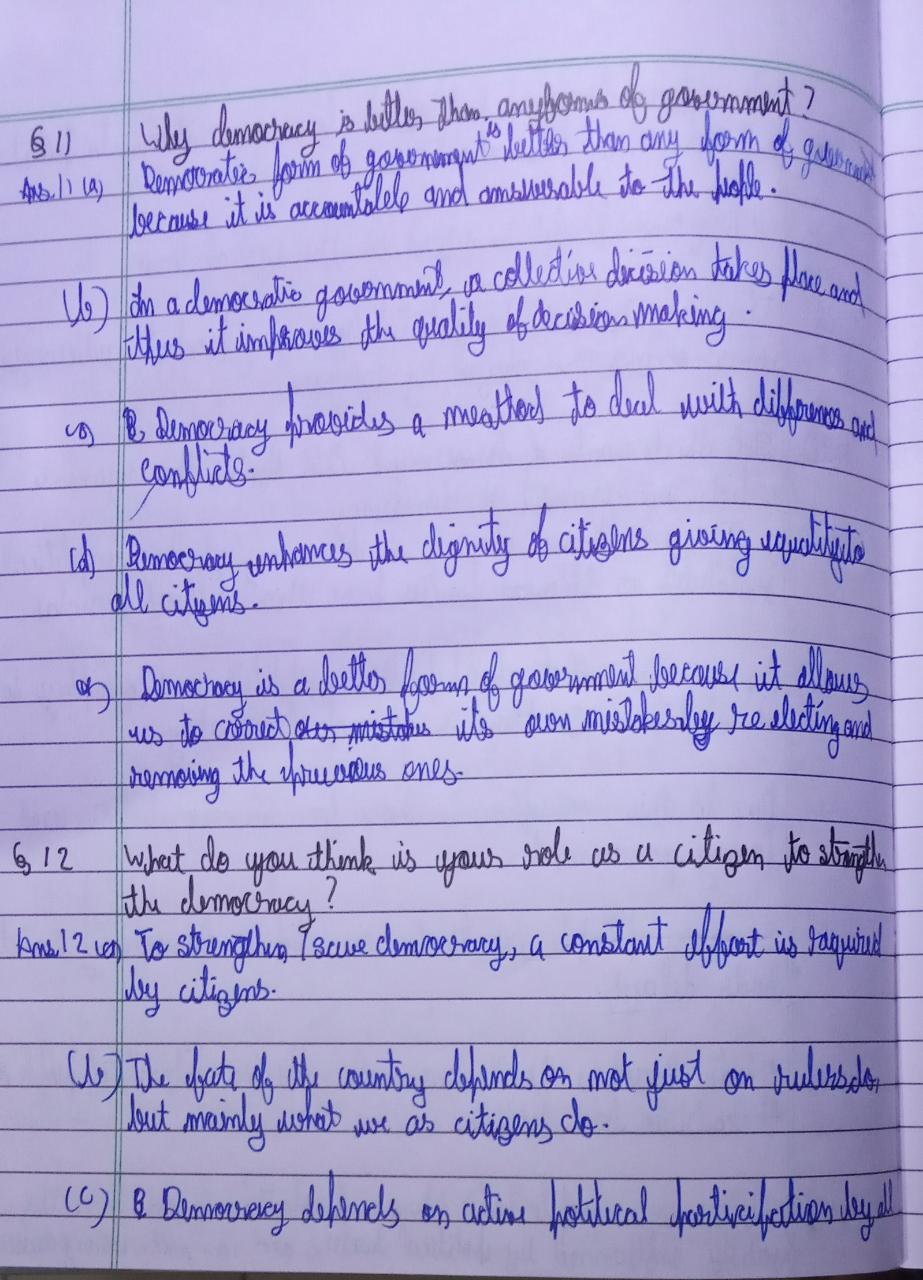 Q 11 Why democracy is better than anyforms of government?
Ans.11 (a) Democratic form of government is better than any form of government
because it is accountable and answerable to the people.
(b) In a democratic government, a collective decision takes place and
thus it improves the quality of decision making.
(c) Democracy provides a meathod to deal with differences and
conflicts.
(d) Democracy enhances the dignity of citizens giving equality to
all citizens.
(e) Democracy is a better form of government because it allows
us to correct our mistakes its own mistakes by re electing and
removing the previous ones.
Q 12 What do you think is your role as a citizen to strengthen
the democracy?
Ans.12 (a) To strengthen / save democracy, a constant effort is required
by citizens.
(b) The fate of the country depends on not just on rulers do,
but mainly what we as citizens do.
(c) Democracy depends on active political participation by all